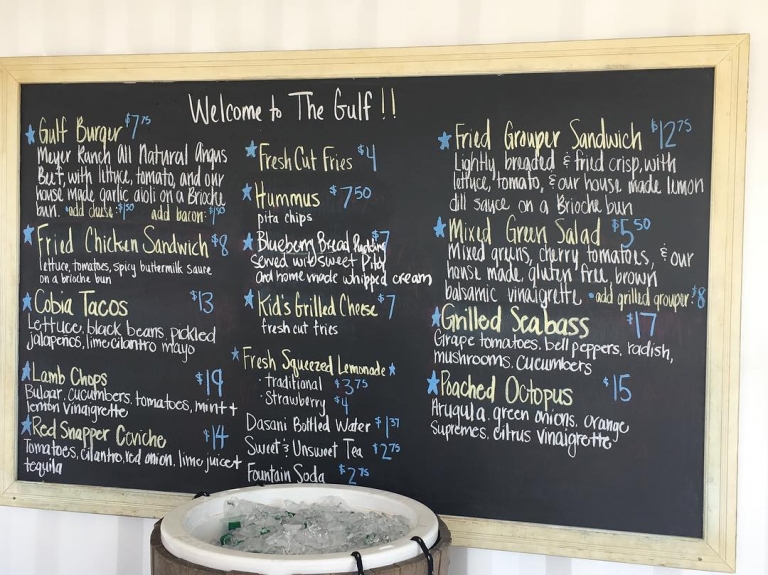 Welcome to The Gulf!!
Gulf Burger $7 75
Meyer Ranch All Natural Angus
Beef, with lettuce, tomato, and our
house made garlic aioli on a Brioche
bun. *add cheese: $1 50 add bacon: $1 50
Fried Chicken Sandwich $8
lettuce, tomatoes, spicy buttermilk sauce
on a brioche bun
Cobia Tacos $13
Lettuce, black beans, pickled
jalapeños, lime cilantro mayo
Lamb Chops $19
Bulgar, cucumbers, tomatoes, mint +
lemon vinaigrette
Red Snapper Ceviche $14
Tomatoes, cilantro, red onion, lime juice +
tequila
Fresh Cut Fries $4
Hummus $7 50
pita chips
Blueberry Bread Pudding $7
served with sweet
and home made whipped cream
Kid's Grilled Cheese $7
fresh cut fries
Fresh Squeezed Lemonade
· traditional $3 75
· Strawberry $4
Dasani Bottled Water $1 37
Sweet & Unsweet Tea $2 75
Fountain Soda $2 75
Fried Grouper Sandwich $12 75
Lightly breaded & fried crisp, with
lettuce, tomato, & our house made lemon
dill sauce on a Brioche bun
Mixed Green Salad $5 50
Mixed greens, cherry tomatoes, & our
house made, gluten free brown
balsamic vinaigrette *add grilled grouper: $8
Grilled Seabass $17
Grape tomatoes, bell peppers, radish,
mushrooms, cucumbers
Poached Octopus $15
Arugula, green onions, orange
supremes, citrus vinaigrette